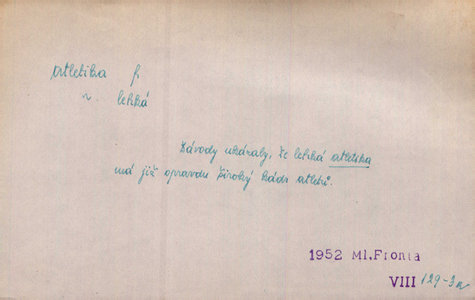 atletika f.
~ lehká
Závody ukázaly, že lehká atletika
má již opravdu široký kádr atletů.
1952 Ml.Fronta
VIII 129-3a